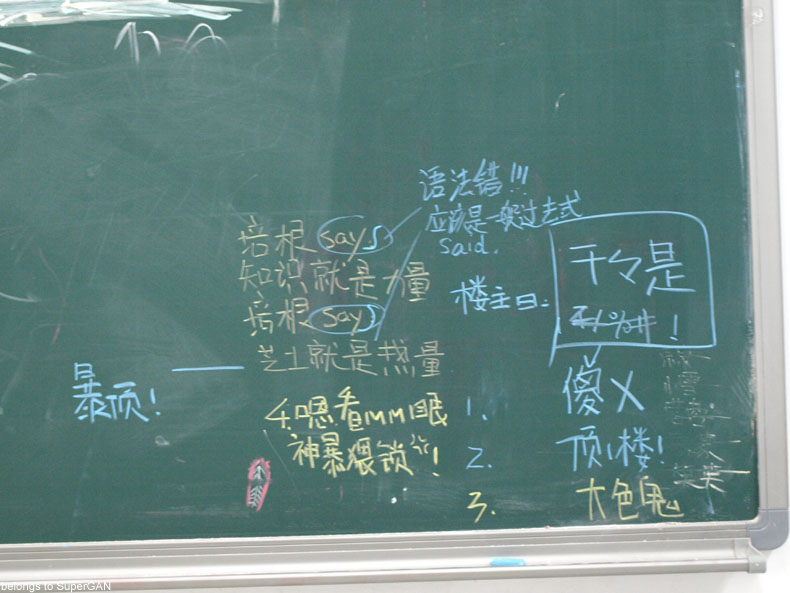 语法错!!!
应该是一般过去式
said.
培根 says
知识就是力量
培根 says
芝士就是热量
楼主曰:
干々是
!
暴顶!
1. 傻X
2. 顶1楼!
3. 大色鬼
4. 嗯看MM眼
神暴猥锁!
belongs to SuperGAN